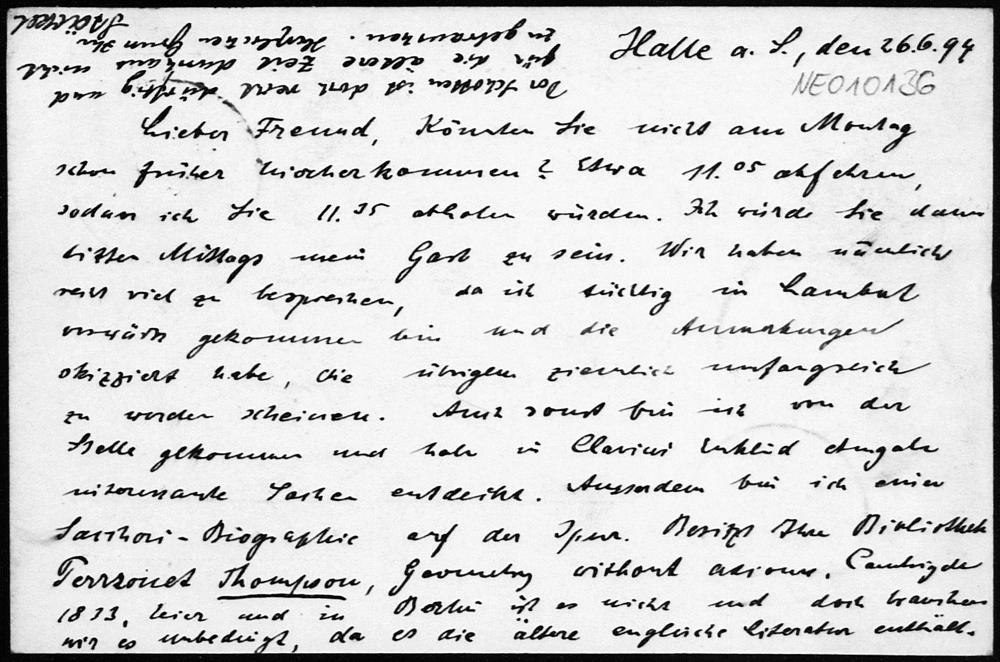 Halle a. S., den 26.6.94
NE010136
Lieber Freund, Könnten Sie nicht am Montag
schon früher hierherkommen? Etwa 11.05 abfahren,
sodass ich Sie 11.35 abholen würden. Ich würde Sie dann
bitten Mittags mein Gast zu sein. Wir haben nämlich
recht viel zu besprechen, da ich tüchtig in Lambert
vorwärts gekommen bin und die Anmerkungen
skizziert habe, die übrigens ziemlich umfangreich
zu werden scheinen. Auch sonst bin ich von der
Stelle gekommen und habe in Clavius Euklid Ausgabe
interessante Sachen entdeckt. Ausserdem bin ich einer
Saccheri-Biographie auf der Spur. Besitzt Ihre Bibliothek
Perronet Thompson, Geometry without axioms. Cambrigde
1833, hier und in Berlin ist es nicht und doch brauchen
wir es unbedingt, da es die ältere englische Literatur enthält.
Der Schotten ist doch recht dürftig und
für die ältere Zeit durchaus nicht
zu gebrauchen. Herzlichen Gruss Ihr
Stäckel